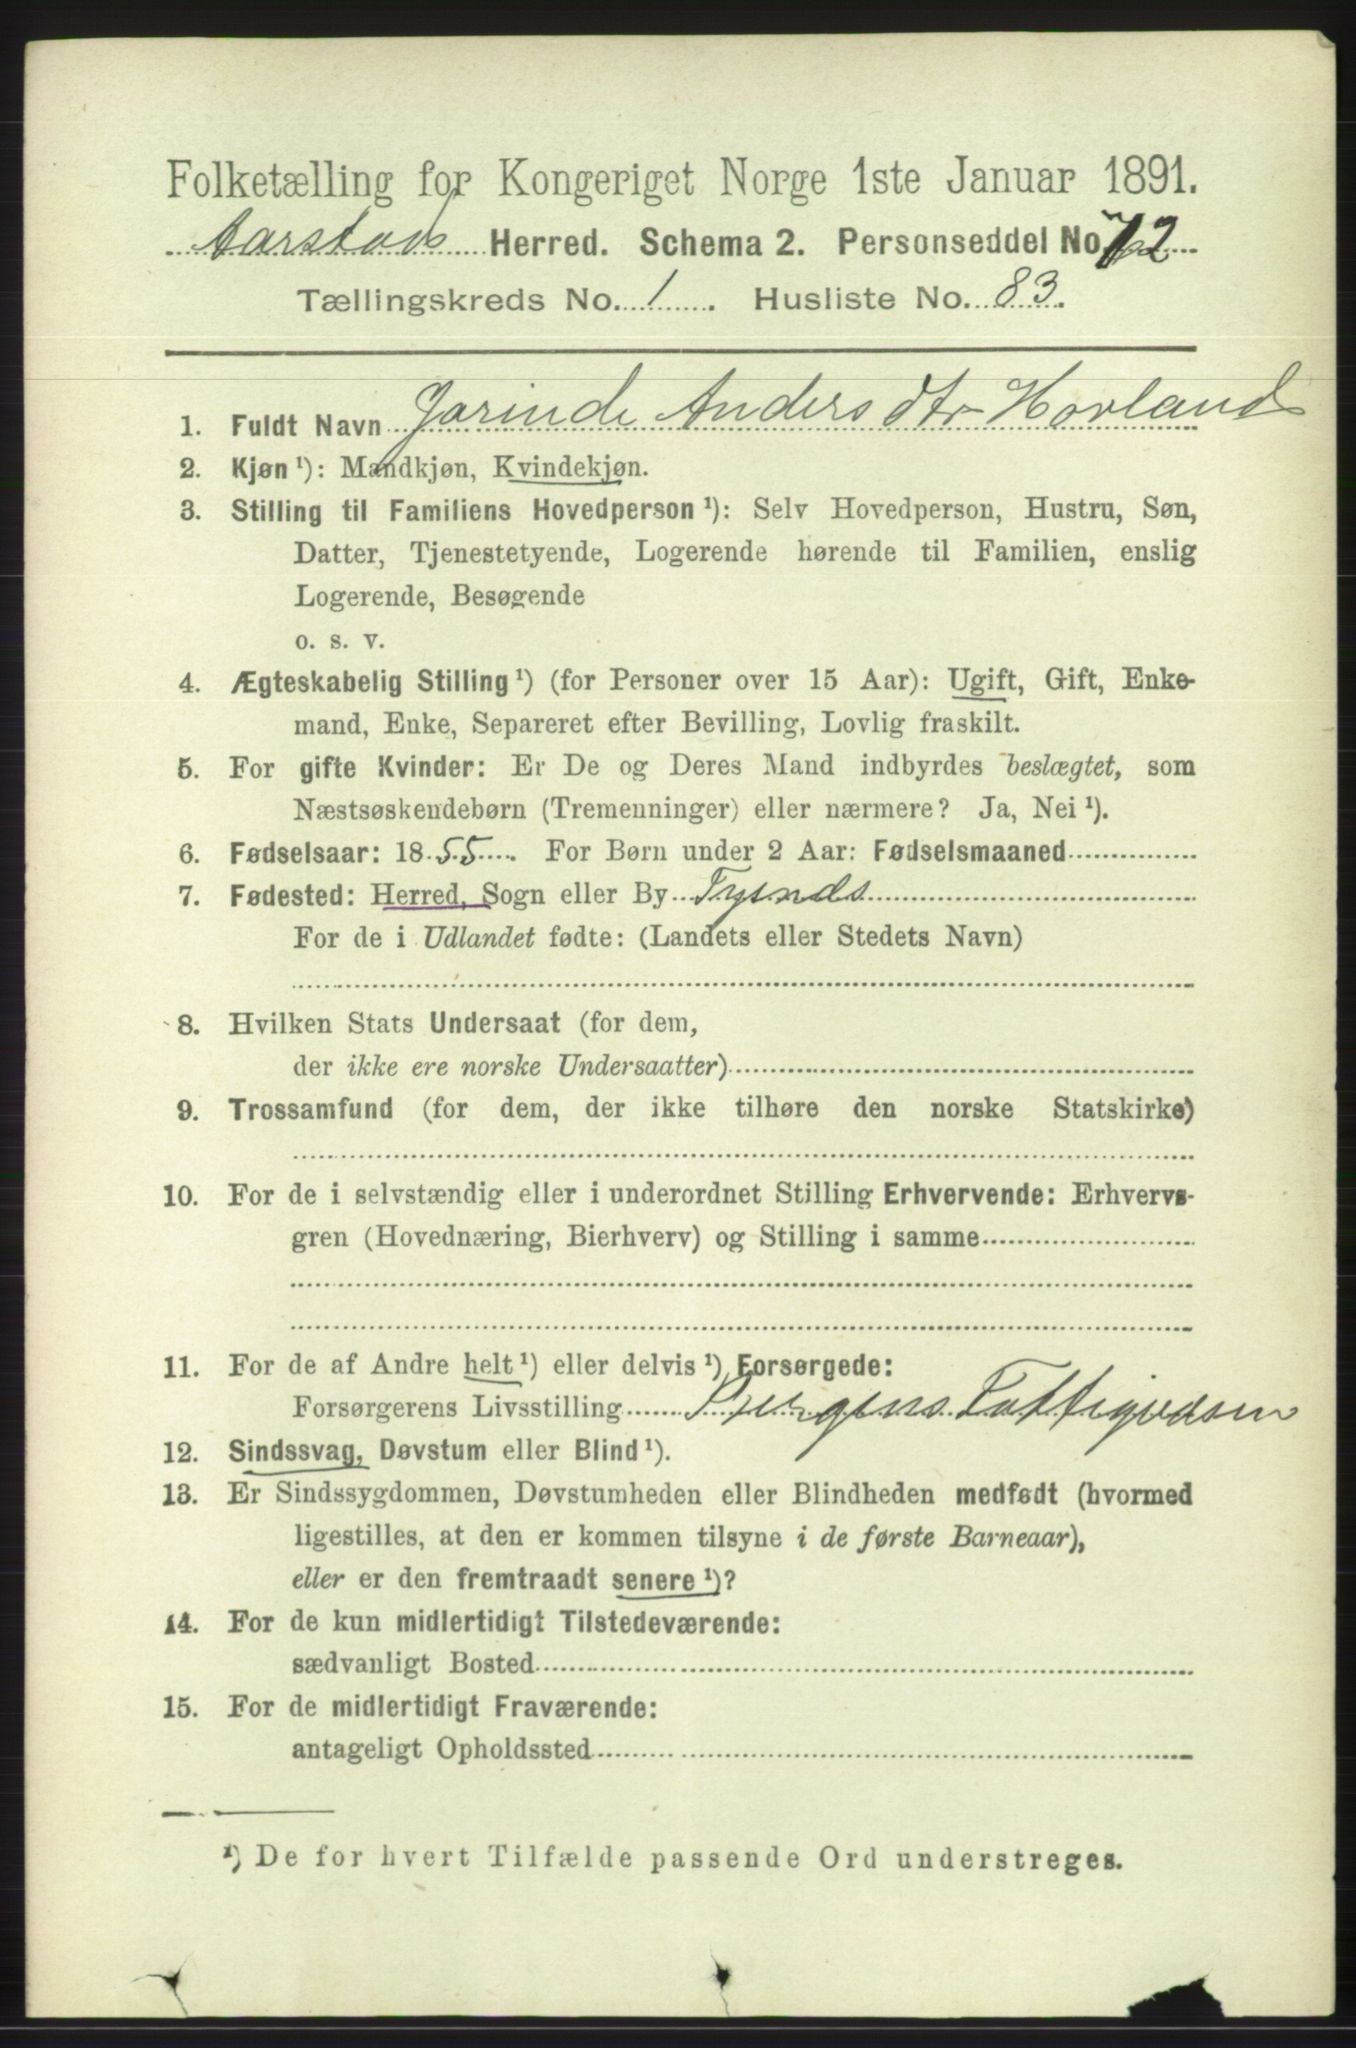 Folketælling for Kongeriget Norge 1ste Januar 1891.
Aarstads Herred. Schema 2. Personseddel No 12
Tællingskreds No. 1. Husliste No. 83.
1. Fuldt Navn Jorinde Andersdtr Hovland
2. Kjøn ¹): Mandkjøn, Kvindekjøn.
3. Stilling til Familiens Hovedperson ¹): Selv Hovedperson, Hustru, Søn,
Datter, Tjenestetyende, Logerende hørende til Familien, enslig
Logerende, Besøgende
o. s. v.
4. Ægteskabelig Stilling ¹) (for Personer over 15 Aar): Ugift, Gift, Enke-
mand, Enke, Separeret efter Bevilling, Lovlig fraskilt.
5. For gifte Kvinder: Er De og Deres Mand indbyrdes beslægtet, som
Næstsøskendebørn (Tremenninger) eller nærmere? Ja, Nei ¹).
6. Fødselsaar: 1855. For Børn under 2 Aar: Fødselsmaaned
7. Fødested: Herred, Sogn eller By Tysnds
For de i Udlandet fødte: (Landets eller Stedets Navn)
8. Hvilken Stats Undersaat (for dem,
der ikke ere norske Undersaatter)
9. Trossamfund (for dem, der ikke tilhøre den norske Statskirke)
10. For de i selvstændig eller i underordnet Stilling Erhvervende: Erhvervs-
gren (Hovednæring, Bierhverv) og Stilling i samme
11. For de af Andre helt ¹) eller delvis ¹) Forsørgede:
Forsørgerens Livsstilling Bergens Fattigvæsen
12. Sindssvag, Døvstum eller Blind ¹).
13. Er Sindssygdommen, Døvstumheden eller Blindheden medfødt (hvormed
ligestilles, at den er kommen tilsyne i de første Barneaar),
eller er den fremtraadt senere ¹)?
14. For de kun midlertidigt Tilstedeværende:
sædvanligt Bosted
15. For de midlertidigt Fraværende:
antageligt Opholdssted
¹) De for hvert Tilfælde passende Ord understreges.